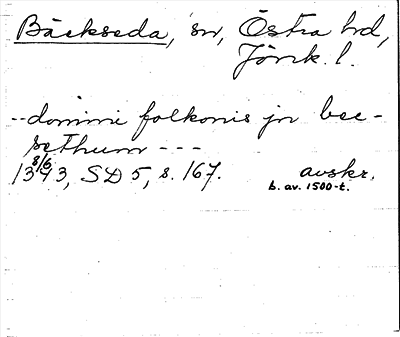 Bäckseda, sn, Östra hd,
Jönk. l.
-- domini folkonis jn bec-
sethum ---
13 8/6 43, SD 5, s. 167. avskr.
b. av. 1500-t.